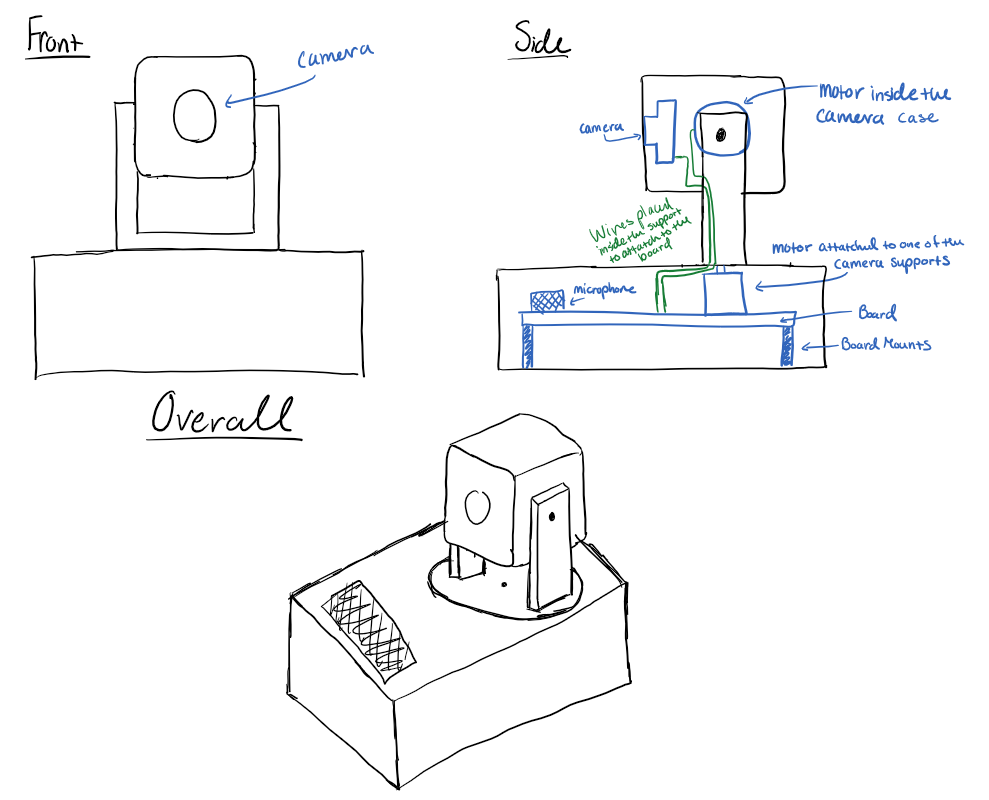 Front
camera
Side
Motor inside the
camera case
camera
Wires placed
inside the support
to attatch to the
board
motor attatched to one of the
camera supports
microphone
Board
Board Mounts
Overall